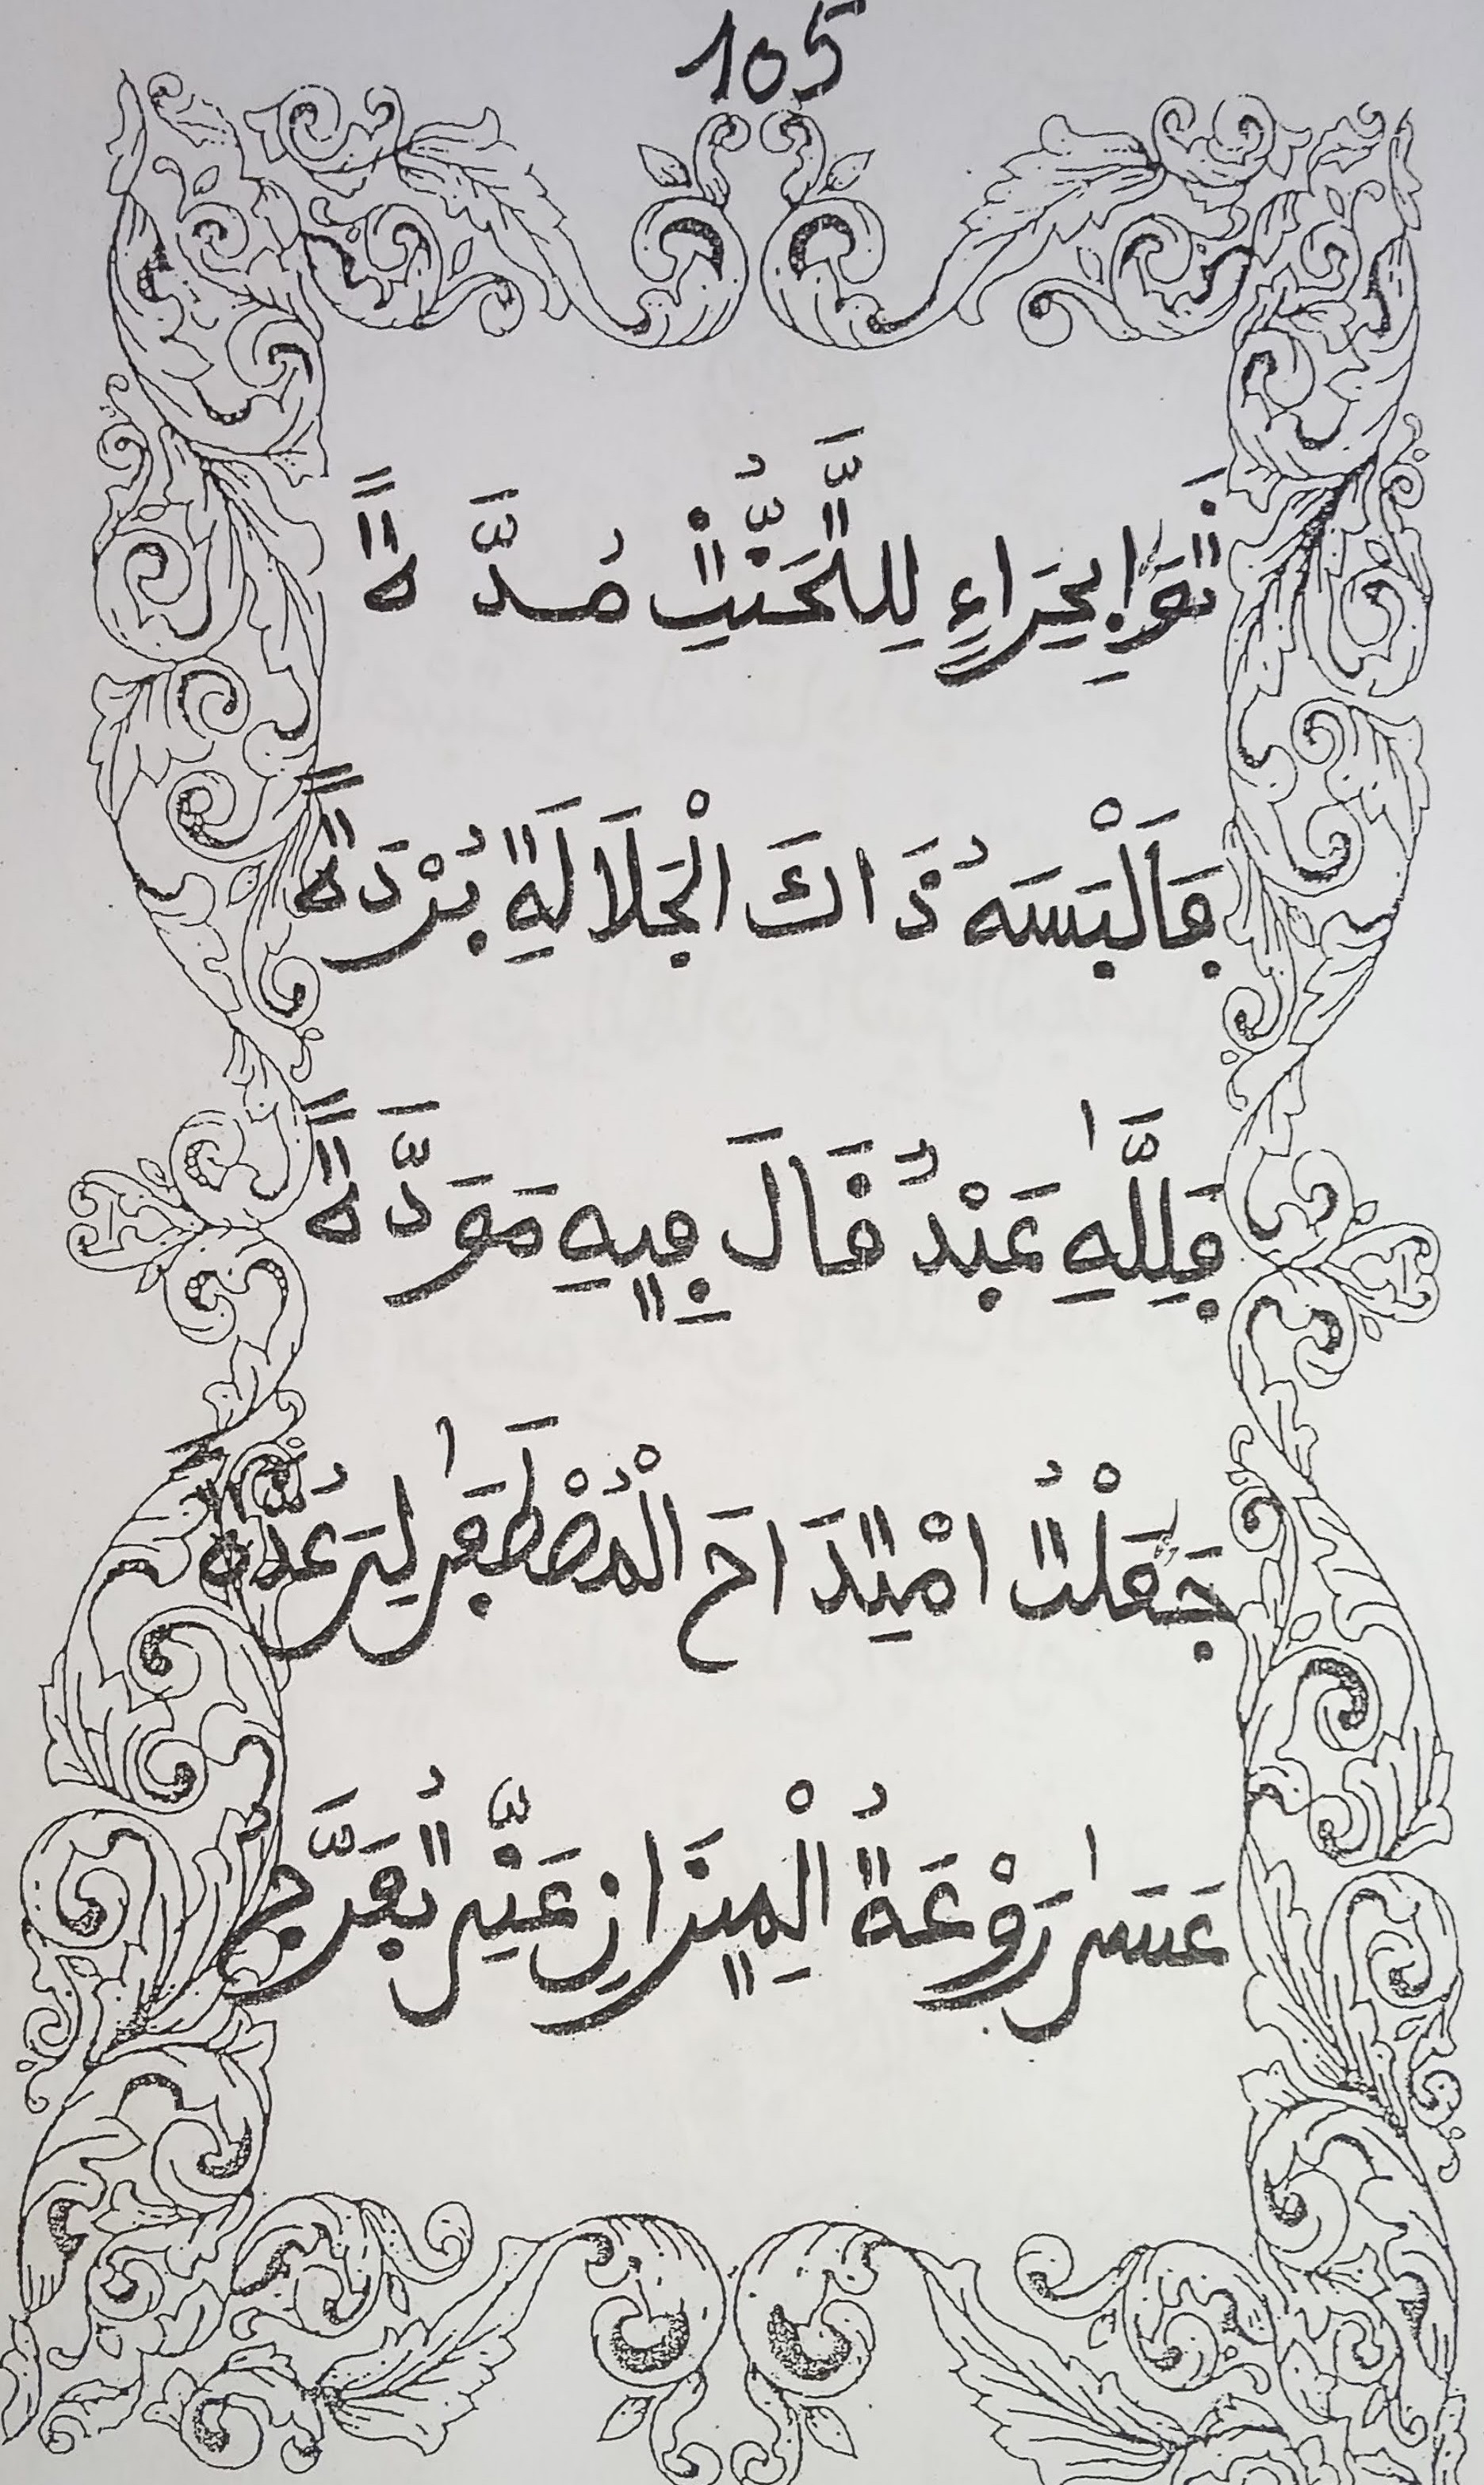 105
ثَوَا بِحِرَاءٍ لِلتَّحَنُّثِ مُدَّةً
فَالْبَسَهُ ذَاكَ الْجَلَالَةِ بُرْدَةً
فَلِلَّهِ عَبْدٌ قَالَ فِيهِ مَوَدَّةً
جَعَلْتُ امْتِدَاحَ الْمُصْطَفَىٰ لِيَ عُدَّةً
عَسَىٰ رَوْعَةُ الْمِيزَانِ عَنِّي تُفَرَّجُ